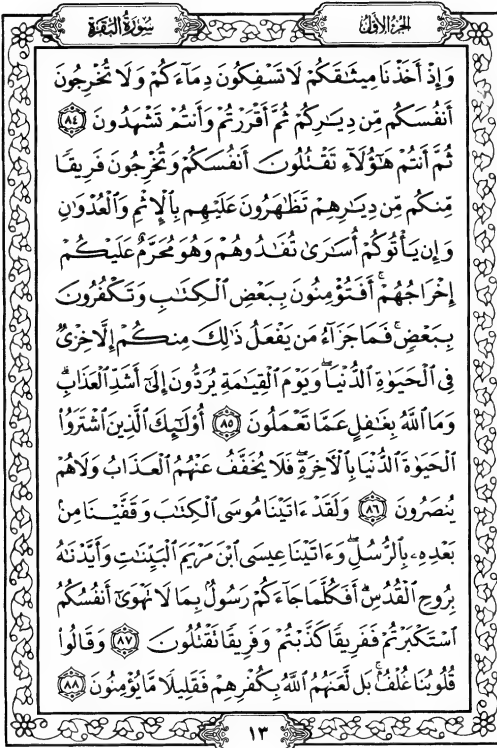 الجزء الأول
سورة البقرة
وَإِذْ أَخَذْنَا مِيثَٰقَكُمْ لَا تَسْفِكُونَ دِمَآءَكُمْ وَلَا تُخْرِجُونَ
أَنفُسَكُم مِّن دِيَٰرِكُمْ ثُمَّ أَقْرَرْتُمْ وَأَنتُمْ تَشْهَدُونَ ٨٤
ثُمَّ أَنتُمْ هَٰٓؤُلَآءِ تَقْتُلُونَ أَنفُسَكُمْ وَتُخْرِجُونَ فَرِيقًا
مِّنكُم مِّن دِيَٰرِهِمْ تَظَٰهَرُونَ عَلَيْهِم بِٱلْإِثْمِ وَٱلْعُدْوَٰنِ
وَإِن يَأْتُوكُمْ أُسَٰرَىٰ تُفَٰدُوهُمْ وَهُوَ مُحَرَّمٌ عَلَيْكُمْ
إِخْرَاجُهُمْ ۚ أَفَتُؤْمِنُونَ بِبَعْضِ ٱلْكِتَٰبِ وَتَكْفُرُونَ
بِبَعْضٍ ۚ فَمَا جَزَآءُ مَن يَفْعَلُ ذَٰلِكَ مِنكُمْ إِلَّا خِزْىٌ
فِى ٱلْحَيَوٰةِ ٱلدُّنْيَا ۖ وَيَوْمَ ٱلْقِيَٰمَةِ يُرَدُّونَ إِلَىٰٓ أَشَدِّ ٱلْعَذَابِ ۗ
وَمَا ٱللَّهُ بِغَٰفِلٍ عَمَّا تَعْمَلُونَ ٨٥ أُو۟لَٰٓئِكَ ٱلَّذِينَ ٱشْتَرَوُا۟
ٱلْحَيَوٰةَ ٱلدُّنْيَا بِٱلْـَٔاخِرَةِ ۖ فَلَا يُخَفَّفُ عَنْهُمُ ٱلْعَذَابُ وَلَا هُمْ
يُنصَرُونَ ٨٦ وَلَقَدْ ءَاتَيْنَا مُوسَى ٱلْكِتَٰبَ وَقَفَّيْنَا مِنۢ
بَعْدِهِۦ بِٱلرُّسُلِ ۖ وَءَاتَيْنَا عِيسَى ٱبْنَ مَرْيَمَ ٱلْبَيِّنَٰتِ وَأَيَّدْنَٰهُ
بِرُوحِ ٱلْقُدُسِ ۗ أَفَكُلَّمَا جَآءَكُمْ رَسُولٌۢ بِمَا لَا تَهْوَىٰٓ أَنفُسُكُمُ
ٱسْتَكْبَرْتُمْ فَفَرِيقًا كَذَّبْتُمْ وَفَرِيقًا تَقْتُلُونَ ٨٧ وَقَالُوا۟
قُلُوبُنَا غُلْفٌۢ ۚ بَل لَّعَنَهُمُ ٱللَّهُ بِكُفْرِهِمْ فَقَلِيلًا مَّا يُؤْمِنُونَ ٨٨
١٣